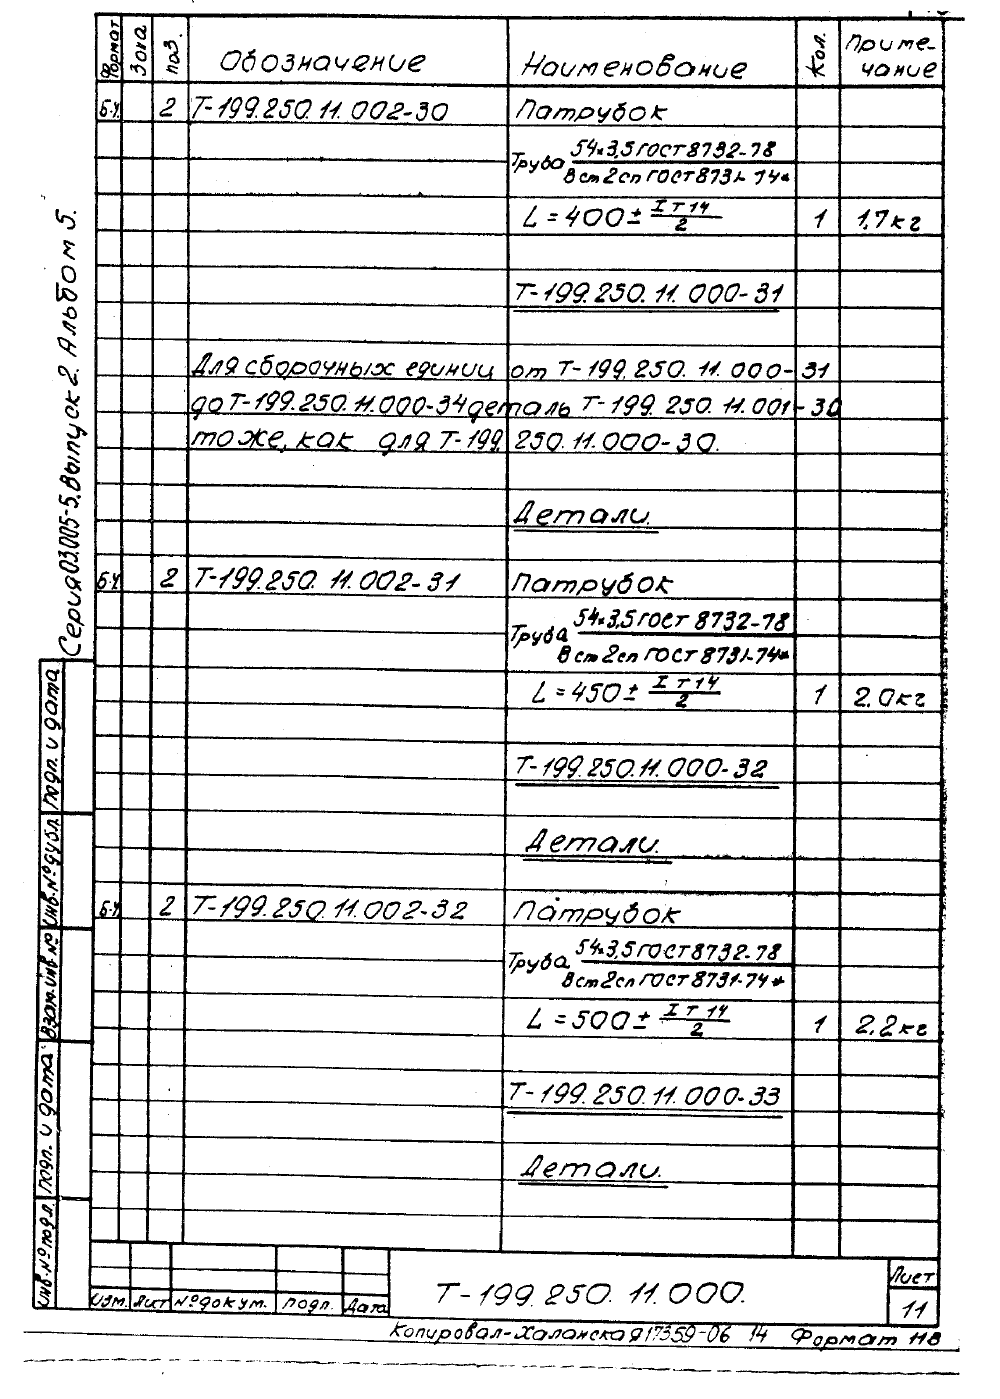 Формат Зона поз. Обозначение Наименование Кол. Приме-
чание
Б.Ч. 2 Т-199.250.11.002-30 Патрубок
Труба 54×3,5 ГОСТ 8732-78
В ст 2сп ГОСТ 8731-74*
L = 400 ± IТ14/2 1 1,7 кг
Т-199.250.11.000-31
Для сборочных единиц от Т-199.250.11.000-31
до Т-199.250.11.000-34 деталь Т-199.250.11.001-30
тоже, как для Т-199.250.11.000-30.
Детали.
Б.Ч. 2 Т-199.250.11.002-31 Патрубок
Труба 54×3,5 ГОСТ 8732-78
В ст 2сп ГОСТ 8731-74*
L = 450 ± IТ14/2 1 2.0 кг
Т-199.250.11.000-32
Детали.
Б.Ч. 2 Т-199.250.11.002-32 Патрубок
Труба 54×3,5 ГОСТ 8732-78
В ст 2сп ГОСТ 8731-74*
L = 500 ± IТ14/2 1 2.2 кг
Т-199.250.11.000-33
Детали.
Серия 03.005-5. Выпуск 2. Альбом 5.
Подп. и дата
Инв.№дубл.
Взам.инв.№
Подп. и дата
Инв.№подл.
Изм. Лист №докум. Подп. Дата
Т-199.250.11.000.
Лист
11
Копировал-Халанская 17359-06 14 Формат 11В